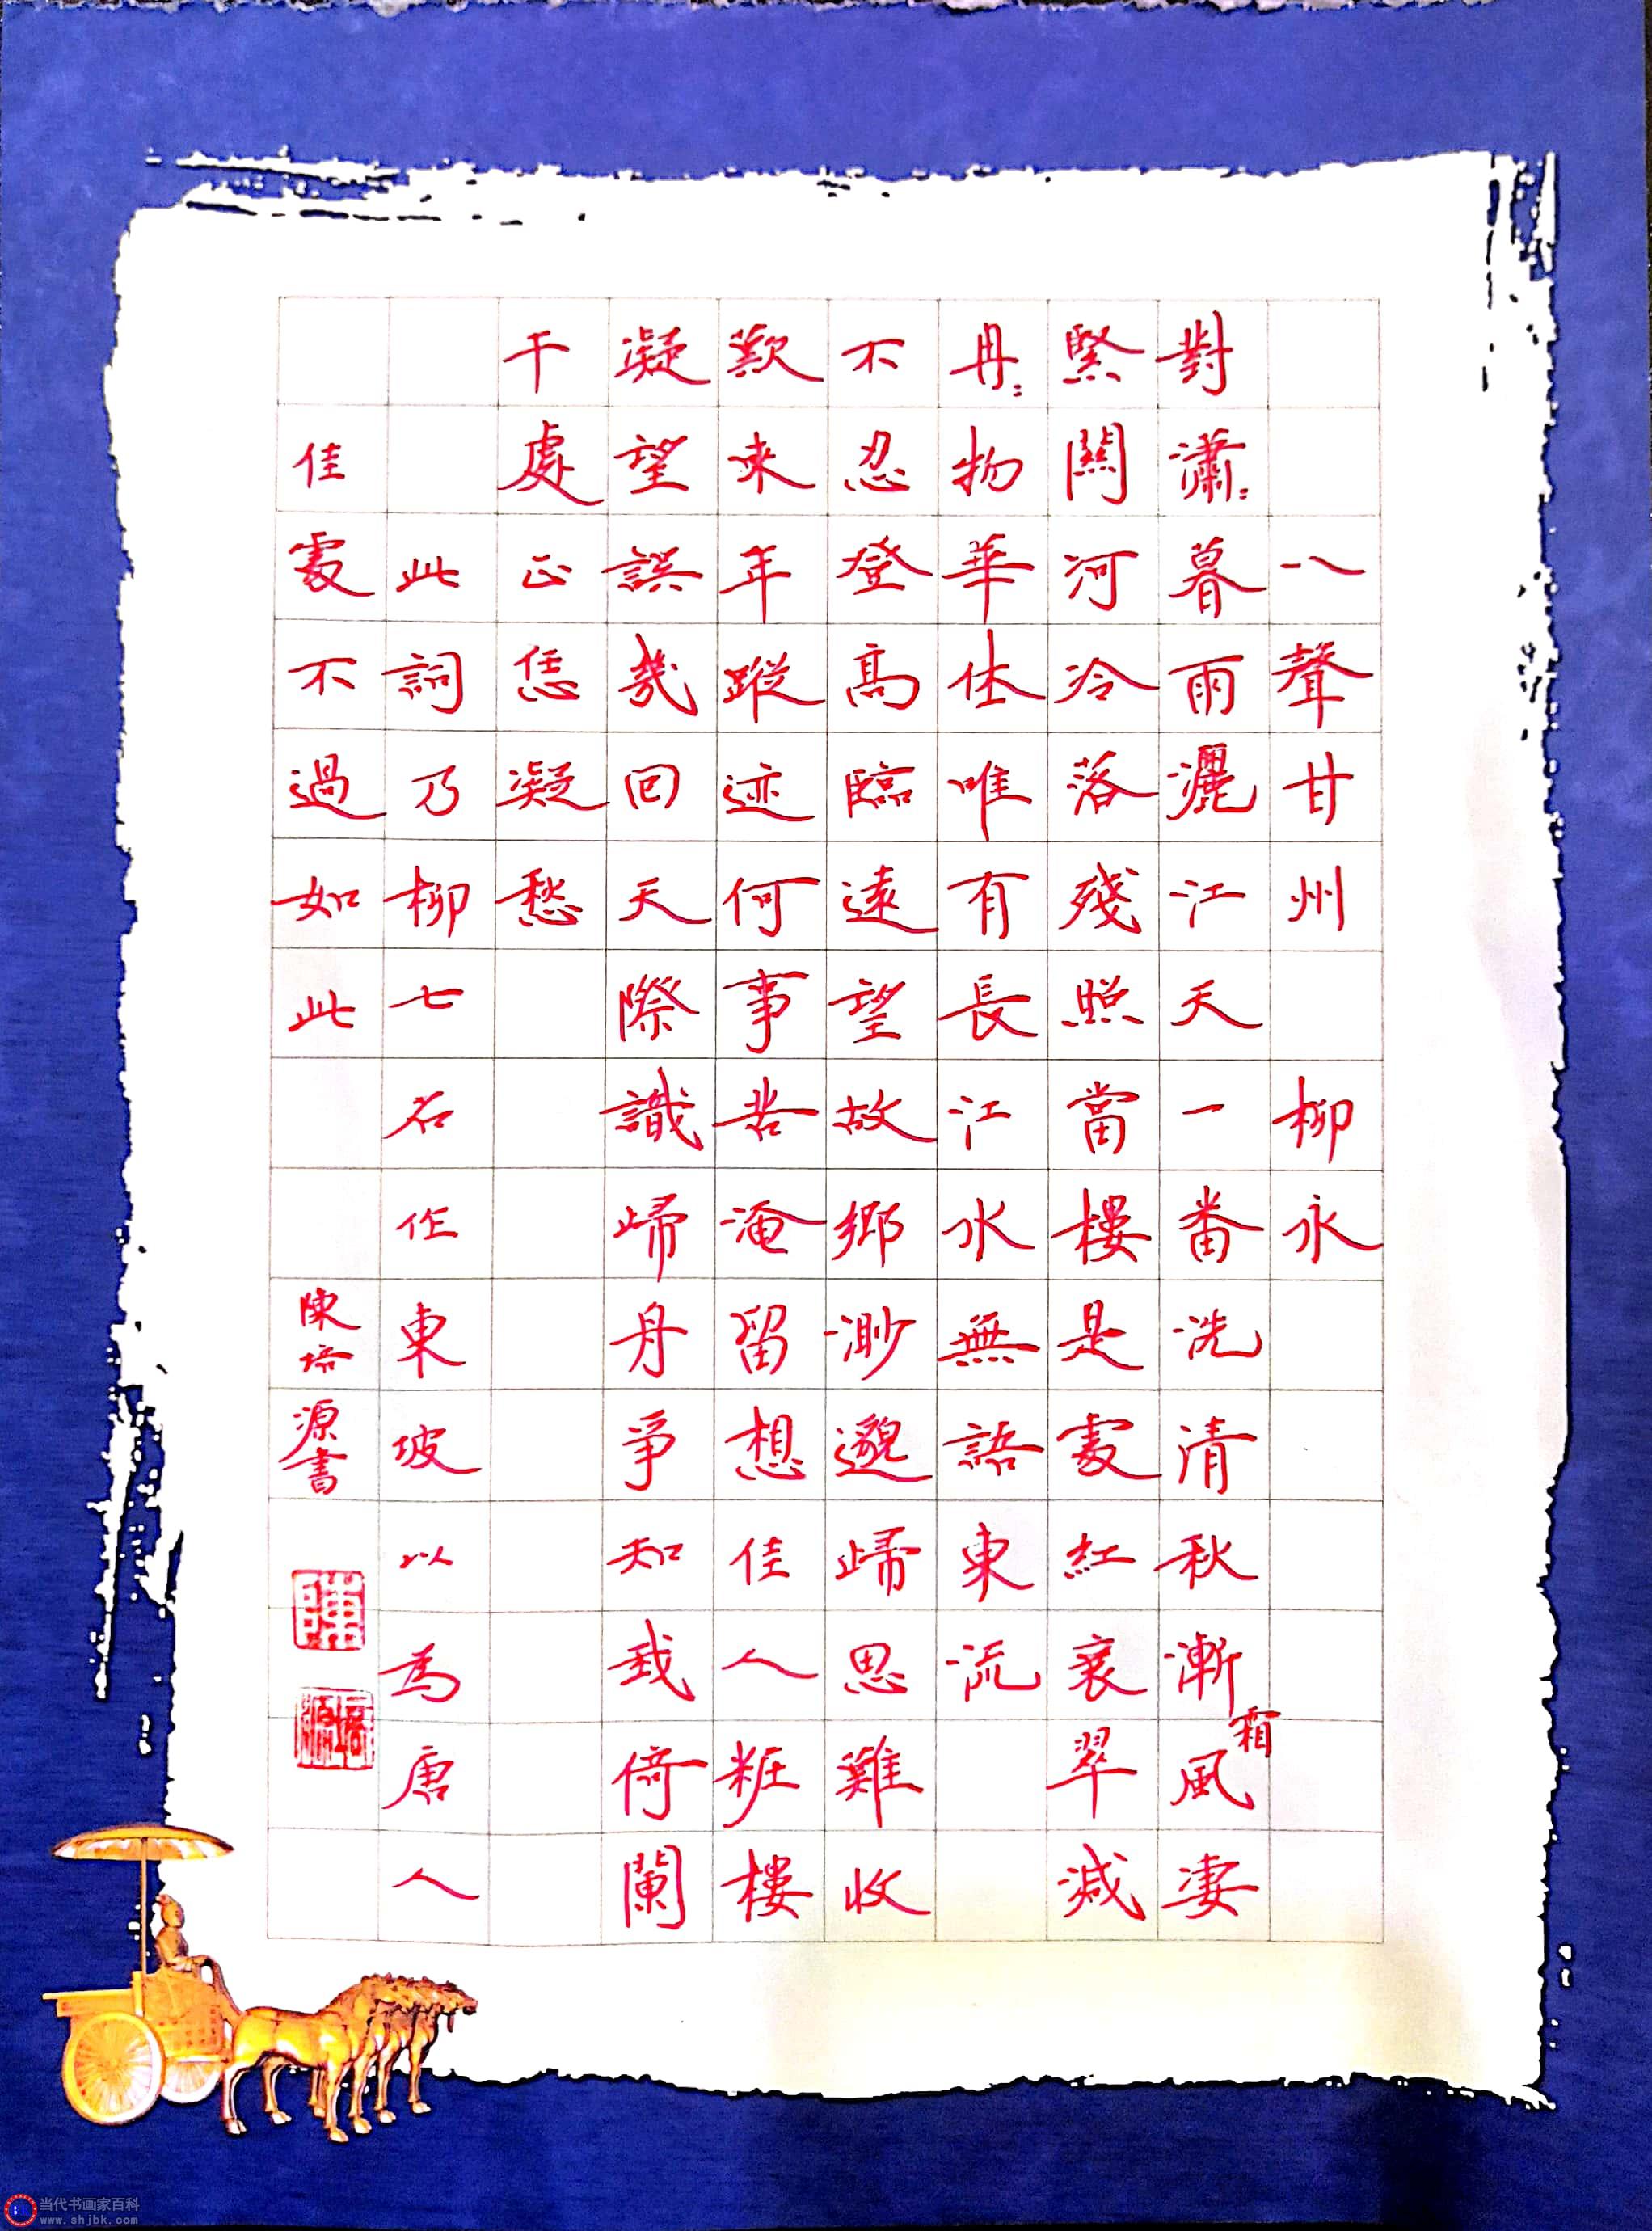 八聲甘州 柳永
對瀟〻暮雨灑江天一番洗清秋漸霜風凄
緊關河冷落殘照當樓是處紅衰翠减
冉〻物華休唯有長江水無語東流
不忍登高臨遠望故鄉渺邈歸思難收
歎來年蹤迹何事苦淹留想佳人粧樓
凝望誤幾回天際識歸舟爭知我倚闌
干處正恁凝愁
此詞乃柳七名作東坡以為唐人
佳處不過如此 陳培源書
陳
培源
当代书画家百科
www.shjbk.com